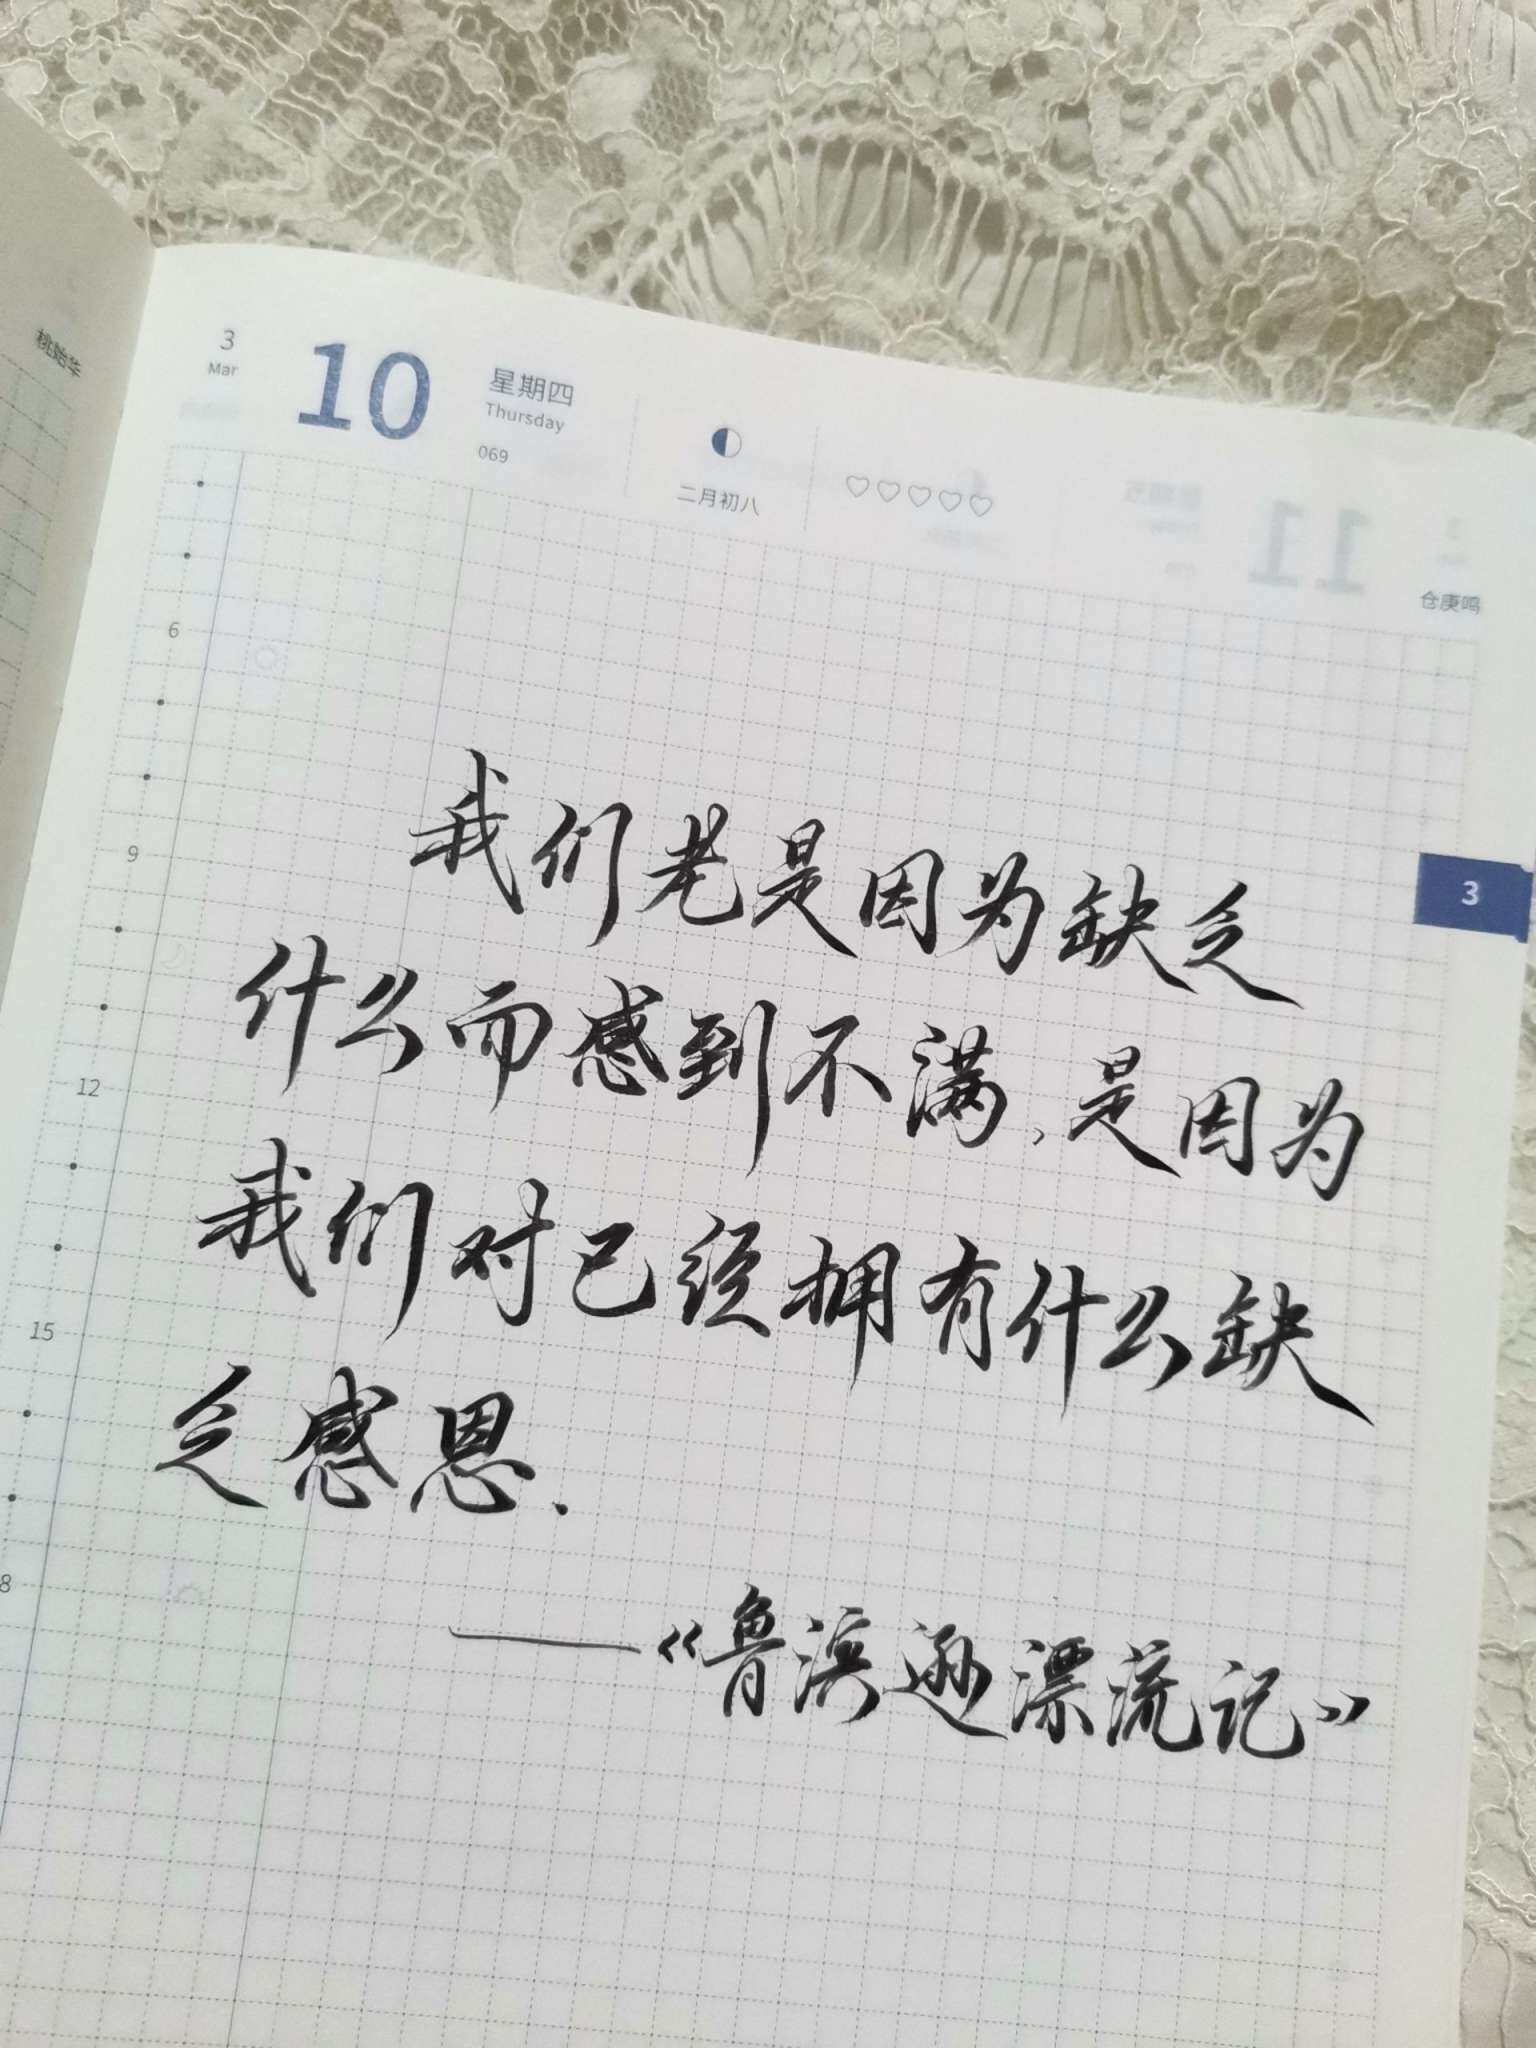 桃始华
3
Mar
10
星期四
Thursday
069
二月初八
仓庚鸣
3
6
9
12
15
8
我们老是因为缺乏
什么而感到不满,是因为
我们对已经拥有什么缺
乏感恩.
——《鲁滨逊漂流记》